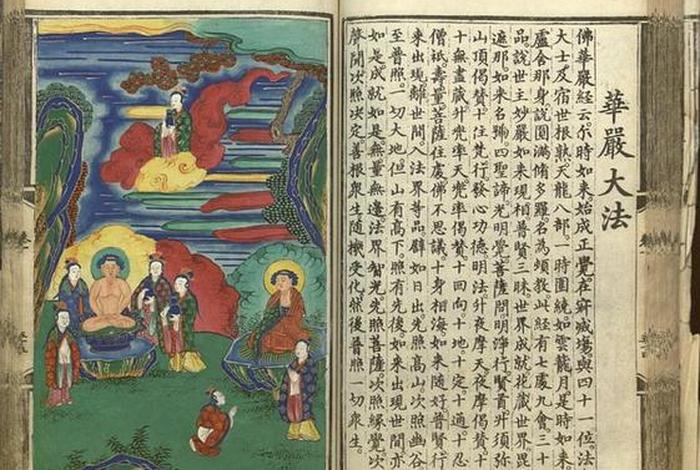 華嚴大法
佛華嚴經云尒時如來。始成正覺。在寂滅場。與四十一位。法
大士及宿世根熟。天龍八部。一時圍繞如雲籠月。是時如來
盧舍那身。說圓滿脩多羅。名為頓教。此經有七處九會三十
品。說世主妙嚴。如來現相。普賢三昧。世界成就。花藏世界。毘
遮那。如來名號。四聖諦。光明覺。菩薩問明。淨行。賢首。升須弥
山頂。偈贊。十住。梵行。發心功德。明法。升夜摩天。夜摩偈贊。十
十無盡藏。升兜率天。兜率偈贊。十回向。十地。十定。十通。十忍
僧祇。壽量。菩薩住處。佛不思議。十身相海。如來隨好。普賢行
來出現。離世間。入法界等品。辟如日出。先照高山。次照幽谷
至普照。一切大地。但山有高下。照有先後。如來出現世間。亦
如是成就如是無量無邊。法界智光。先照菩薩。次照緣覺。次
聲聞。次照决定善根衆生。隨機受化。然後普照一切衆生。